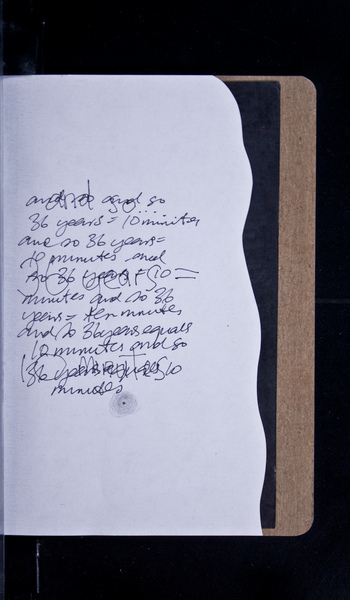 and so and so
36 years = 10 minutes
and so 36 years =
10 minutes and
so 36 years = 10 =
minutes and so 36
years = ten minutes
and so 36 years equals
10 minutes and so
36 years equals 10
minutes